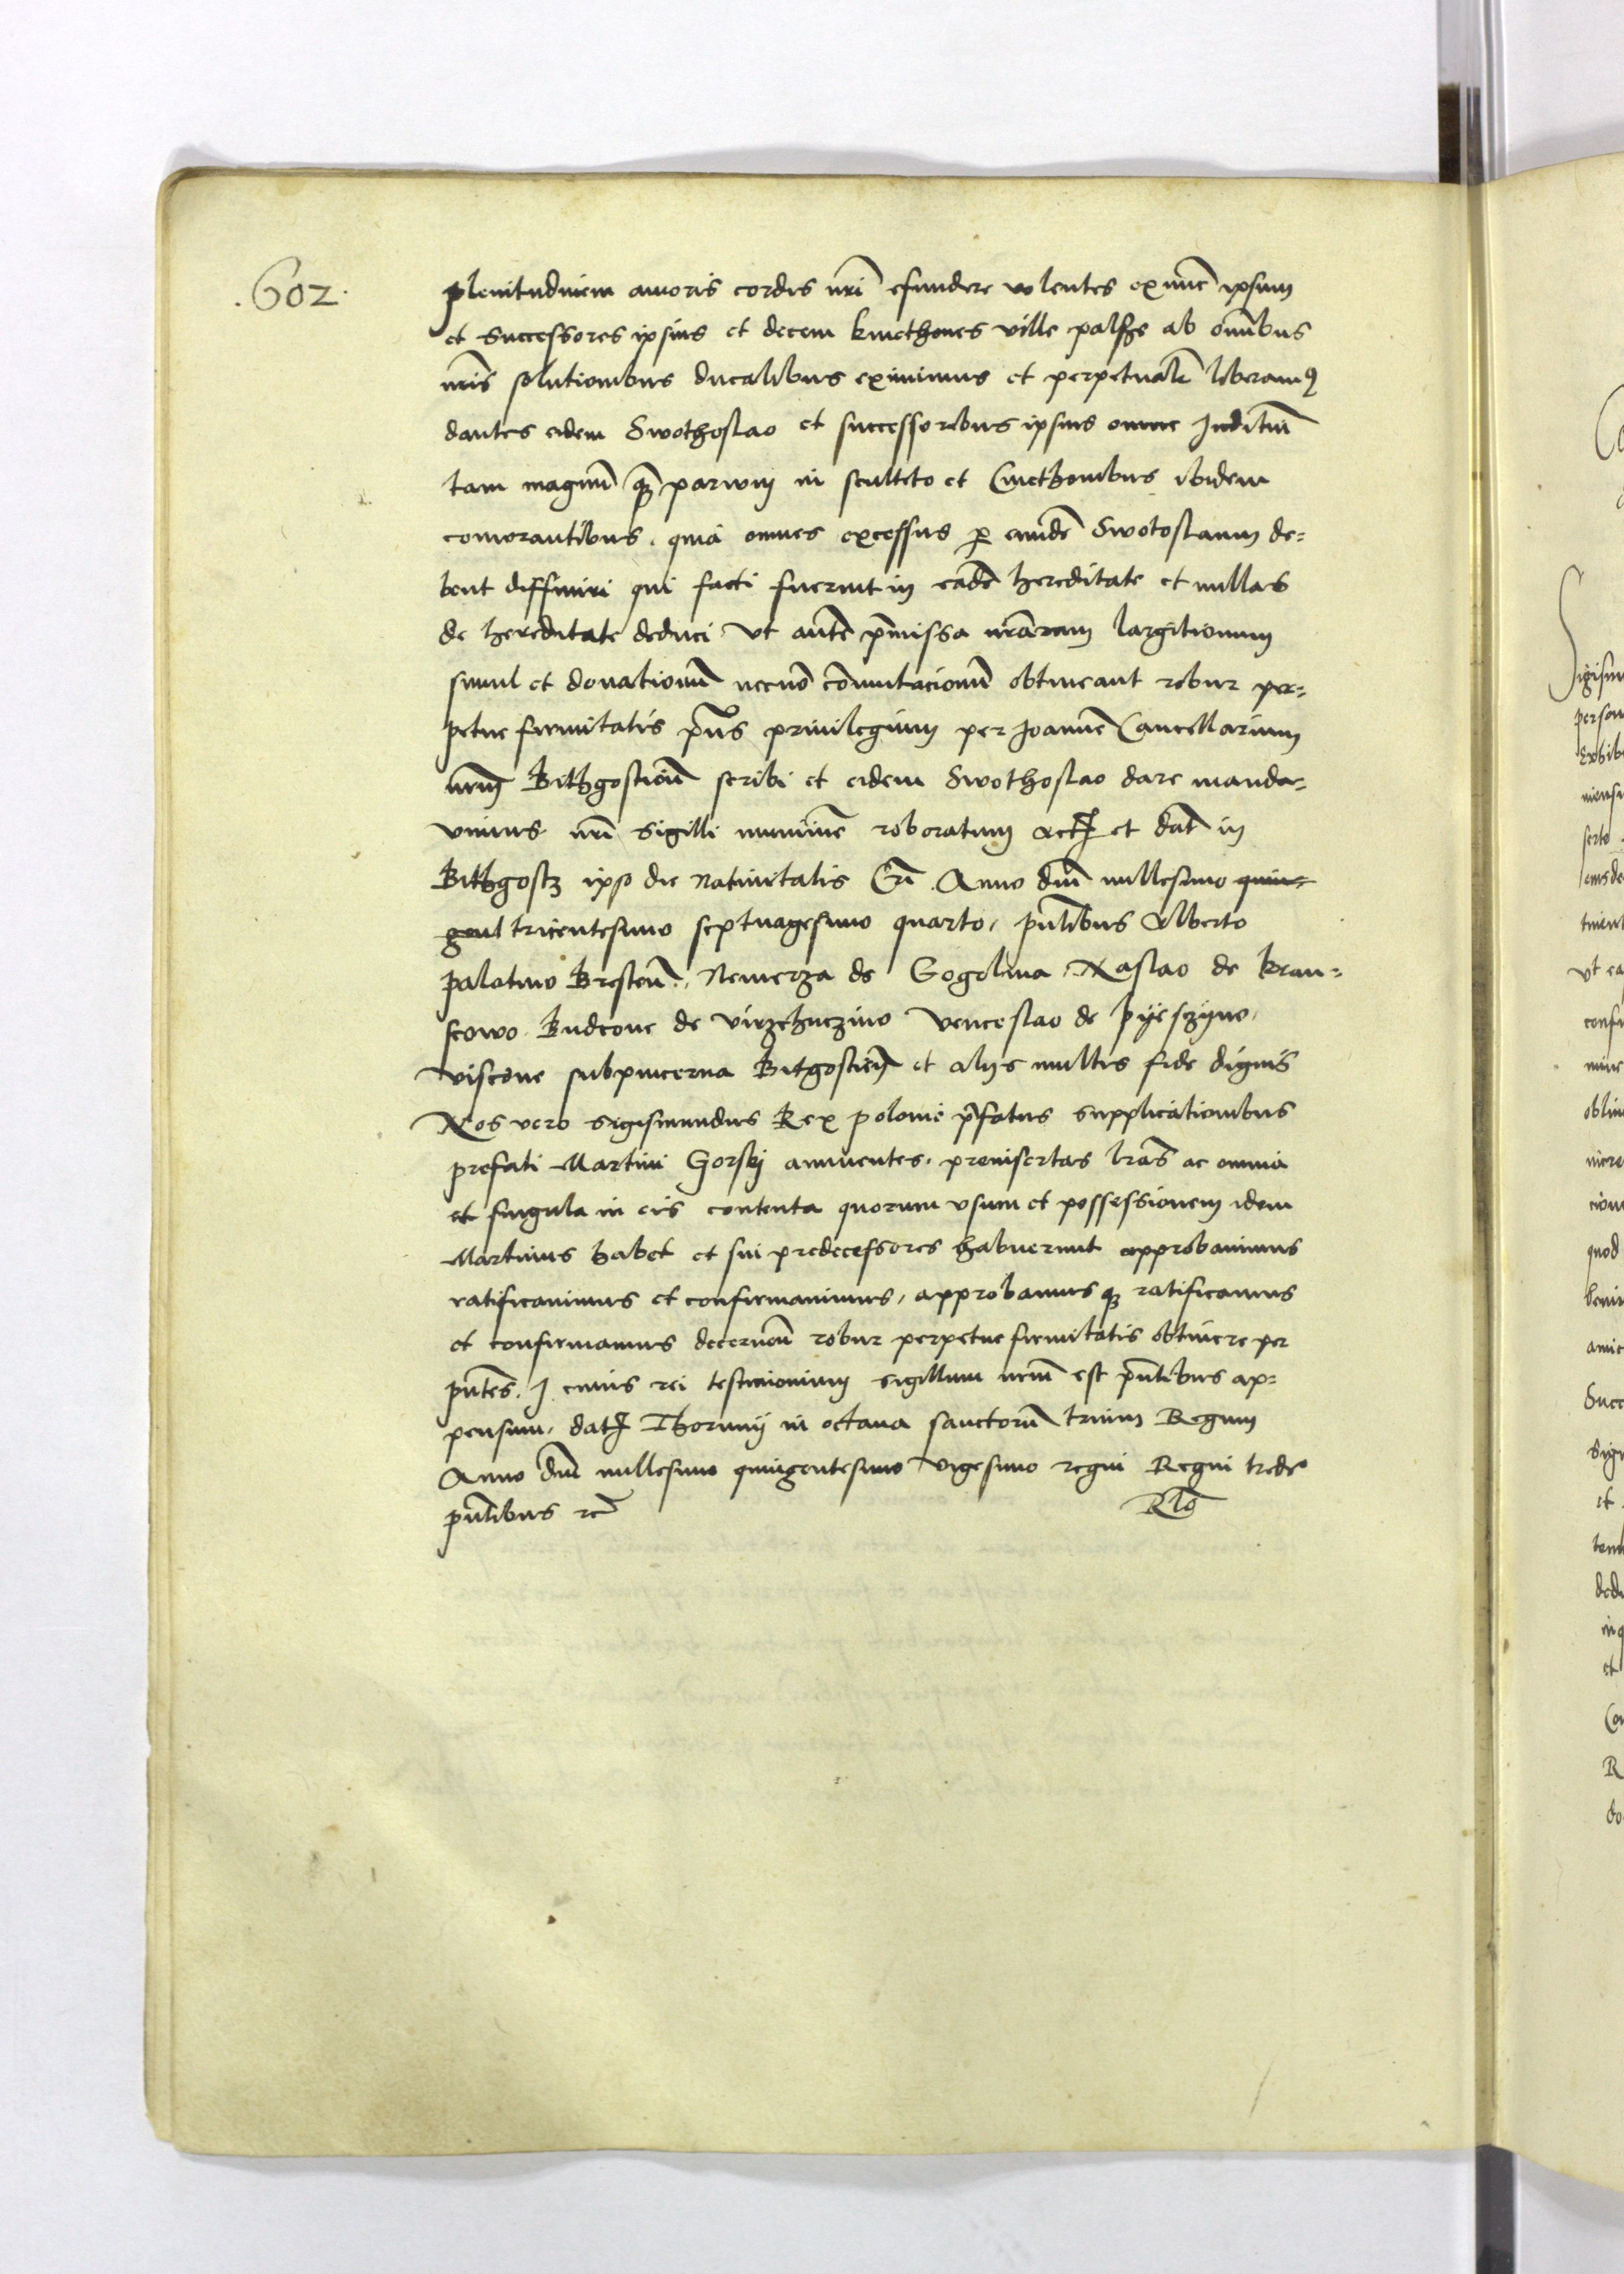 .602.
plenitudinem amoris cordis nri efundere volentes ex nunc ipsum
et successores ipsius et decem kmethones ville palsche ab omibus
nris solutionibus ducalibus eximimus et perpetualr liberamus
dantes eidem Swothoslao et successoribus ipsius omne Juditium
tam magnum quam parwm in sculteto et Cmethonibus ibidem
comorantibus. quia omnes excessus per eunde Swotoslaum de=
bent diffiniri qui facti fuerint in eade hereditate et nullas
de hereditate deduci Vt aute pmissa nrarum largitionum
simul et donationum necno comutacionum obtineant robur per=
petue firmitatis pns priuilegium per Joanne Cancellarium
nrum Bithgostien scribi et eidem Swothoslao dare manda=
vimus nri sigilli munimne roboratum act et dat in
Bithgostz ipso die Natiuitatis Cri Anno dni millesimo quin=
gent tricentesimo septuagesimo quarto, pntibus Alberto
palatino Bresten. Nemerza de Gogolina Naslao de Kran=
scowo Budcone de virzchuczino Venceslao de pyesczyno,
viscone subpincerna Bitgostien et alys multis fide dignis
Nos vero Sigismundus Rex polonie pfatus supplicationibus
prefati Martini Gorskj annuentes, preinsertas lras ac omnia
et singula in eis contenta quorum vsum et possessionem idem
Martinus habet et sui predecessores habuerunt approbauimus
ratificauimus et confirmauimus, approbamus q3 ratificamus
et confirmamus decernen robur perpetue firmitatis obtinere per
pntes. J cuius rei testimonium sigillum nrum est pntibus ap=
pensum, dat Thorunij in octaua sanctorum trium Regum
Anno dni millesimo quingentesimo vigesimo regni Regni trede
pntibus rc Rlo